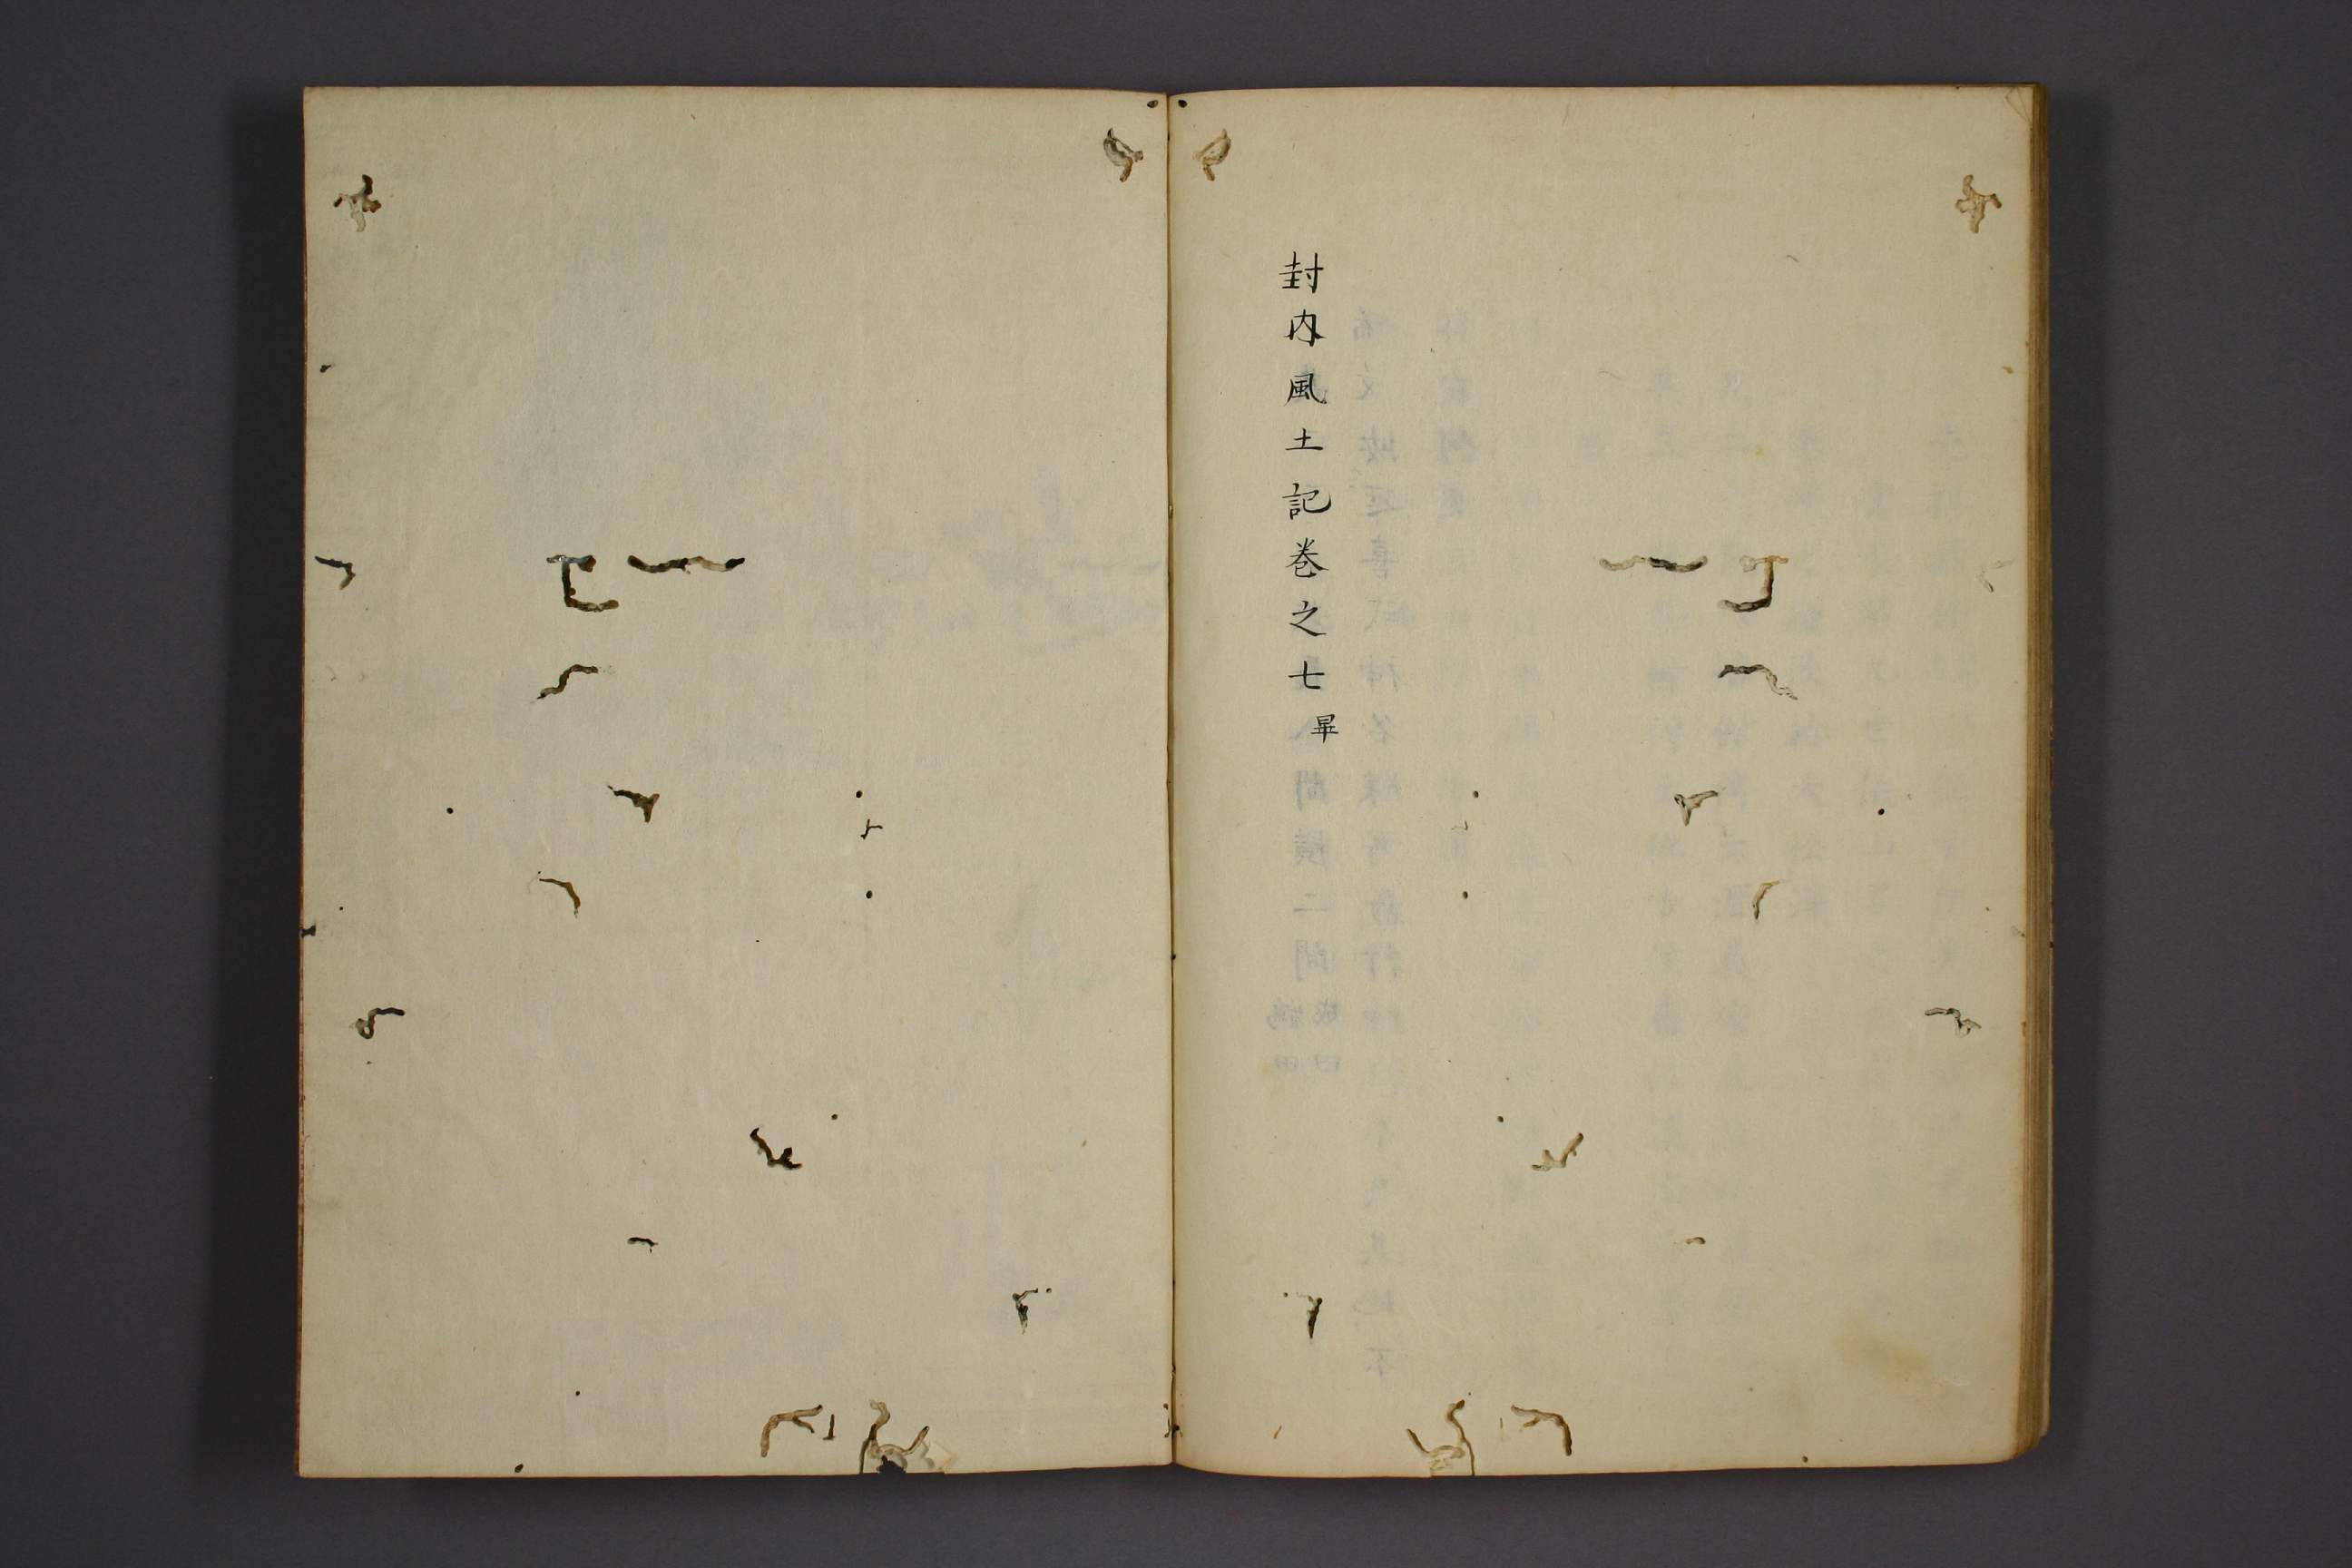 封内風土記巻之七畢